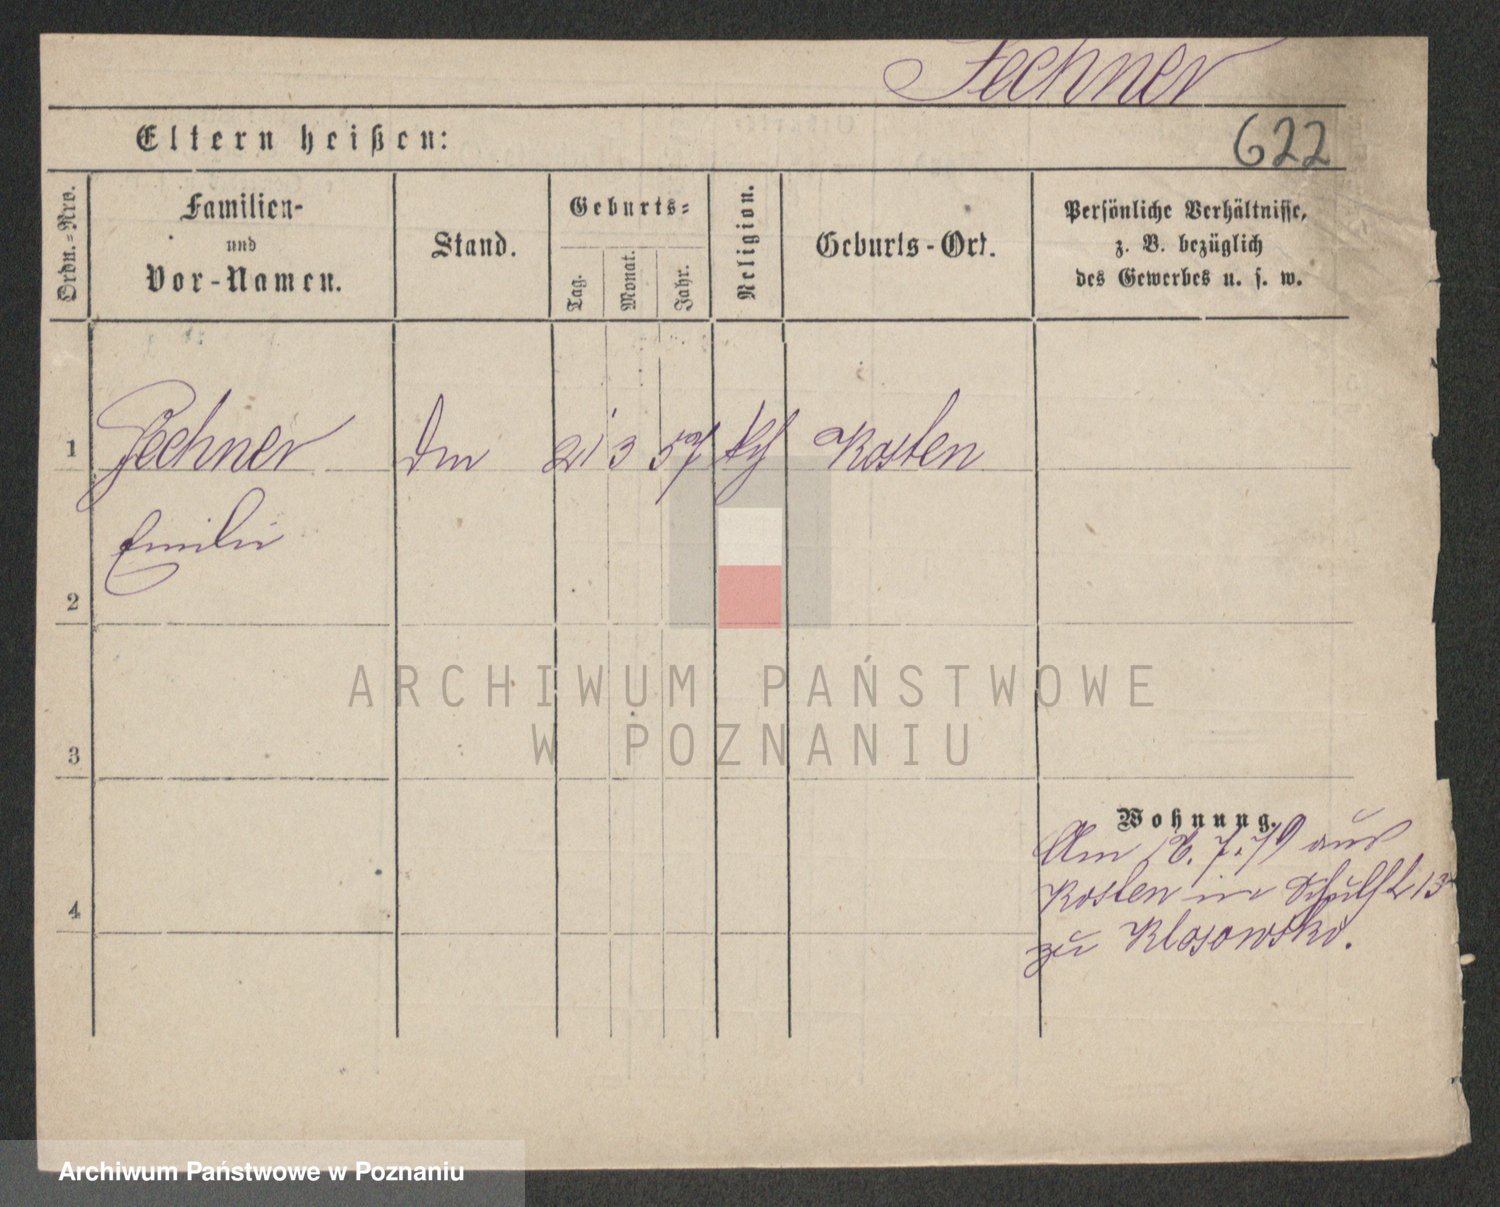 Fechner
Eltern heißen:
622
Ordn.=Nro.
Familien-
und
Vor-Namen.
Stand.
Geburts=
Tag.
Monat.
Jahr.
Religion.
Geburts-Ort.
Persönliche Verhältnisse,
z. B. bezüglich
des Gewerbes u. s. w.
1 Fechner 21 3 57 Kosten
Emilie
2
3
4
Wohnung.
Am 7. 79 aus
Kosten in Schulstr 13
zu Klosowski.
ARCHIWUM PAŃSTWOWE
W POZNANIU
Archiwum Państwowe w Poznaniu